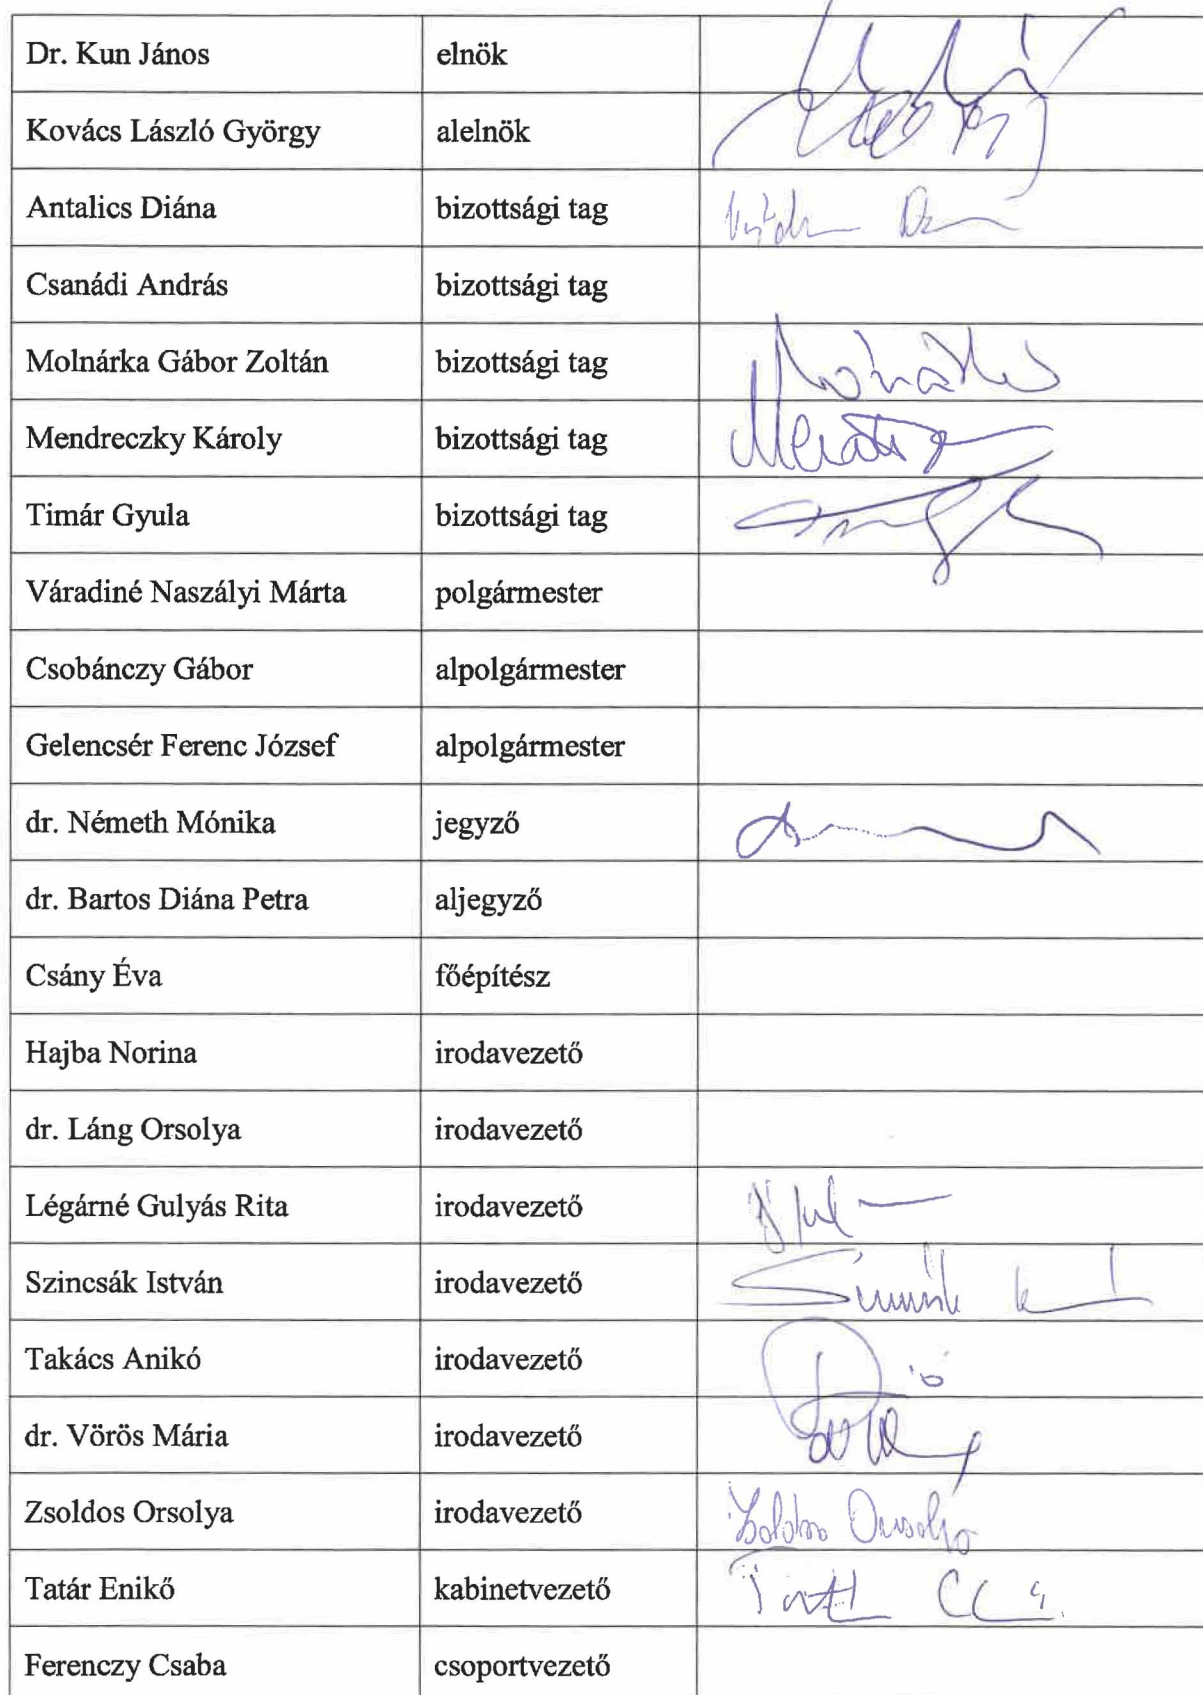 Dr. Kun János elnök
Kovács László György alelnök
Antalics Diána bizottsági tag
Csanádi András bizottsági tag
Molnárka Gábor Zoltán bizottsági tag
Mendreczky Károly bizottsági tag
Timár Gyula bizottsági tag
Váradiné Naszályi Márta polgármester
Csobánczy Gábor alpolgármester
Gelencsér Ferenc József alpolgármester
dr. Németh Mónika jegyző
dr. Bartos Diána Petra aljegyző
Csány Éva főépítész
Hajba Norina irodavezető
dr. Láng Orsolya irodavezető
Légárné Gulyás Rita irodavezető
Szincsák István irodavezető
Takács Anikó irodavezető
dr. Vörös Mária irodavezető
Zsoldos Orsolya irodavezető
Tatár Enikő kabinetvezető
Ferenczy Csaba csoportvezető